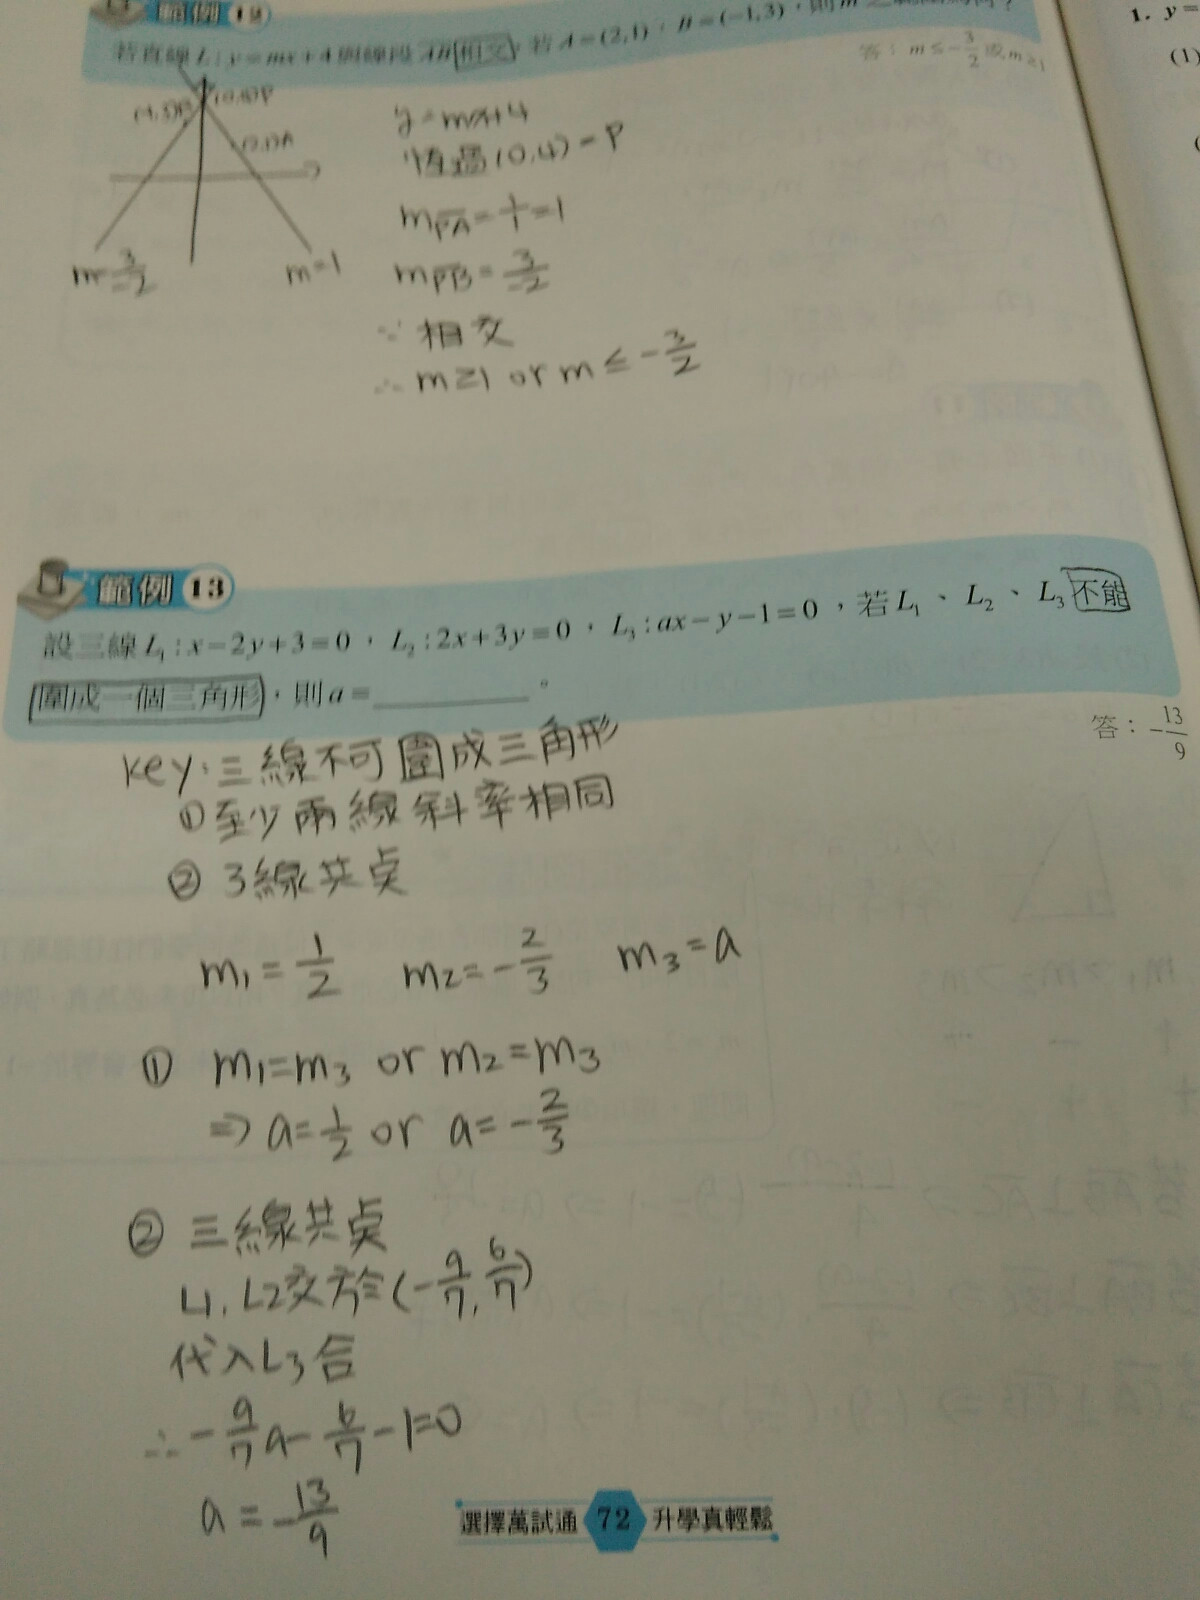 範例 12
若直線 L : y = mx + 4 與線段 AB 相交，若 A = (2,1)，B = (−1,3)，則 m
答：m ≤ −3/2 或 m ≥ 1
y = mx+4
恆過(0,4) = P
m=3/-2
m=1
mPA = = 1
mPB = 3/-2
∵ 相交
∴ m ≥ 1 or m ≤ -3/2
範例 13
設三線 L₁ : x − 2y + 3 = 0，L₂ : 2x + 3y = 0，L₃ : ax − y − 1 = 0，若 L₁、L₂、L₃ 不能
圍成一個三角形，則 a = ________。
答：−13/9
key：三線不可圍成三角形
① 至少兩線斜率相同
② 3線共点
m₁ = 1/2 m₂ = -2/3 m₃ = a
① m₁=m₃ or m₂=m₃
⇒ a=1/2 or a=-2/3
② 三線共点
L1, L2交於(-9/7, 6/7)
代入L3合
∴ -9/7a - 6/7 - 1=0
a = -13/9
選擇萬試通 72 升學真輕鬆
1. y =
(1)